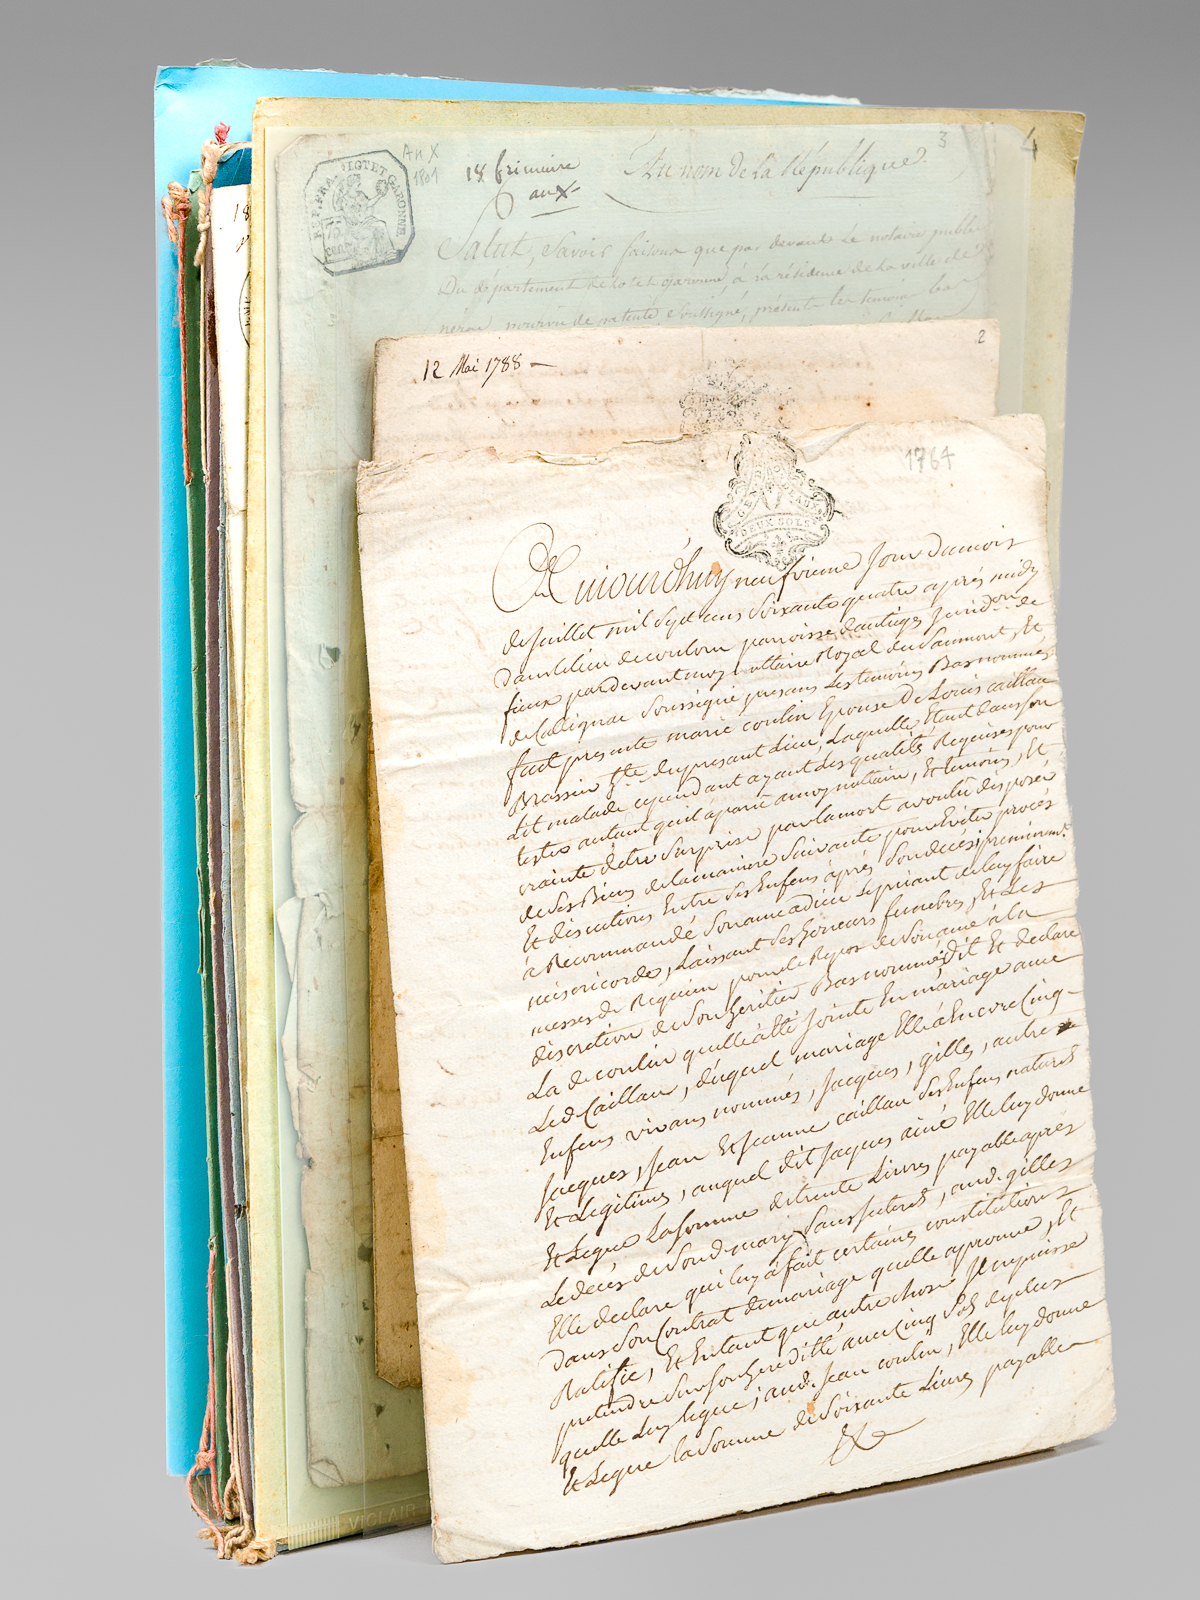 REP. FRA. LOT ET GARONNE
75 CENT
An X
1801
18 frimaire
an X
3
4
Au nom de la République
Salut, Savoir faisons que par devant Le notaire public
Du département de Lot et garonne, à la résidence de la ville de
nérac, pourvu de patente Soussigné, présents les temoins bas
18
2
12 Mai 1788
1764
GEN. DE BORDEAUX
DEUX SOLS
Aujourdhuy neufvieme Jour du mois
de Juillet mil Sept cens Soixante quatre après midy
Dans le lieu de coulom parroisse dautieges Jurid.on de
fieux par devant moy nottaire Royal du Saumont, Et
de Callignac Soussigné presans Les temoins Bas nommés
fait presante marie coulin Epouse De Louis caillau
Brassier h.te du presant Lieu, Laquelle Etant dans son
Lit malade cependant ayant des qualités Requises pour
tester autant qu'il a parû a moy nottaire, Et temoins, Et
crainte d'être Surprise par la mort a voulu disposer
de Ses Biens de la maniere Suivante pour Eviter procès
Et discutions Entre Ses Enfens après Son decés; premierem.t
à Recommandé Son ame a dieu Le priant de luy faire
misericorde, Laissant Ses honeurs funebres, Et Les
messes de Requiem pour le Repos de Son ame à la
discretion de Son heritier Bas nommé, dit Et declare
La d. coulin qu'elle à Eté Jointe En mariage avec
Le d. Caillau, duquel mariage Elle à Encore Cinq
Enfens vivans nommés, Jacques, gilles, autre
Jacques, Jean Et Jeanne caillau Ses Enfens naturels
Et Legitimes, auquel dit Jacques ainé Elle luy donne
Et Legue La Somme de trente Livres payable après
Le decès de Son d. mary Sans interest, aud. gilles
Elle declare qui luy à fait certaines constitutions
dans Son Contrat de mariage quelle approuve, Et
Ratifie, Et Entant que autre chose Il ny puisse
pretendre Sur Son heredité avec Cinq Sols de plus
quelle Luy legue; aud. Jean coulin, Elle luy donne
Et Legue la Somme de Soixante Livres payable
VICLAIR